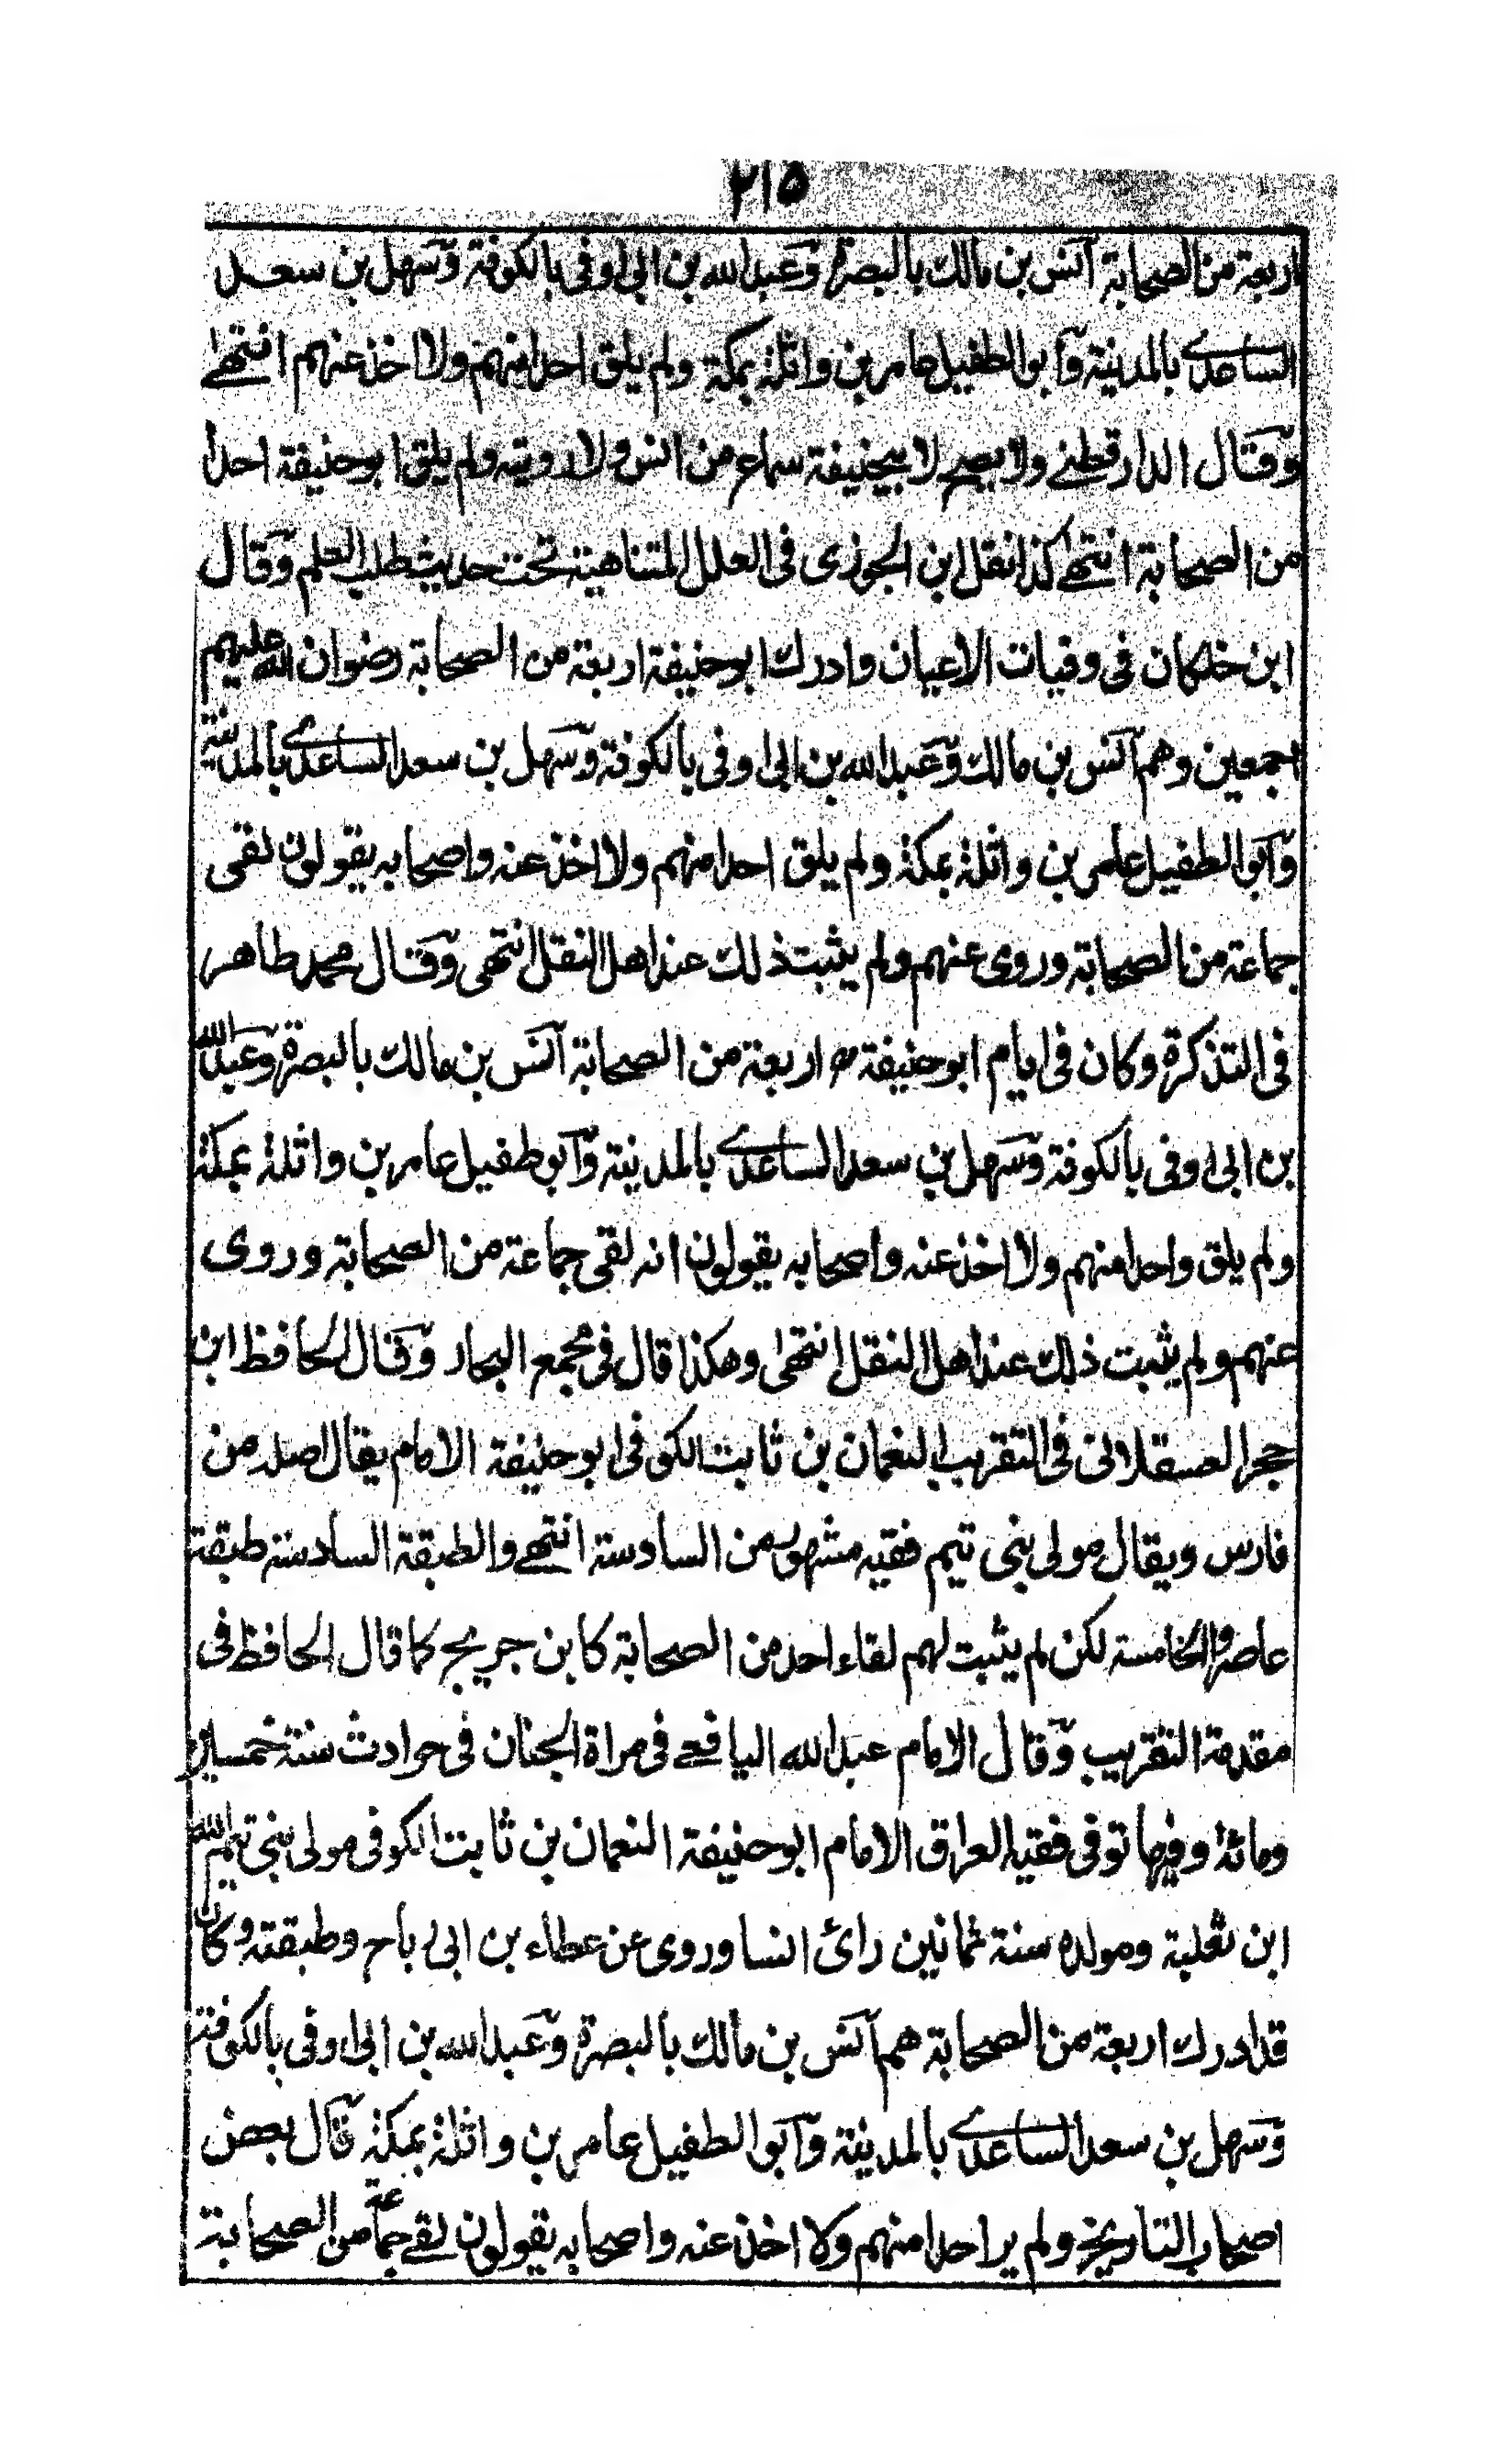 ٢١٥
اربعة من الصحابة انس بن مالك بالبصرة وعبد الله بن ابي اوفى بالكوفة وسهل بن سعد
الساعدي بالمدينة وابو الطفيل عامر بن واثلة بمكة ولم يلق احدا منهم ولا اخذ عنهم انتهى
وقال الدارقطني ولا يصح لابيحنيفة سماع من انس ولا روية ولم يلق ابو حنيفة احدا
من الصحابة انتهى كذا نقل ابن الجوزى فى العلل المتناهية تحت حديث طلب العلم وقال
ابن خلكان فى وفيات الاعيان وادرك ابو حنيفة اربعة من الصحابة رضوان الله عليهم
اجمعين وهم انس بن مالك وعبد الله بن ابى اوفى بالكوفة وسهل بن سعد الساعدي بالمدينة
وابو الطفيل عامر بن واثلة بمكة ولم يلق احدا منهم ولا اخذ عنه واصحابه يقولون لقى
جماعة من الصحابة وروى عنهم ولم يثبت ذلك عند اهل النقل انتهى وقال محمد طاهر
فى التذكرة وكان فى ايام ابو حنيفة رح اربعة من الصحابة انس بن مالك بالبصرة وعبد الله
بن ابى اوفى بالكوفة وسهل بن سعد الساعدي بالمدينة وابو طفيل عامر بن واثلة بمكة
ولم يلق واحدا منهم ولا اخذ عنه واصحابه يقولون انه لقى جماعة من الصحابة وروى
عنهم ولم يثبت ذلك عند اهل النقل انتهى وهكذا قال فى مجمع البحار وقال الحافظ ابن
حجر العسقلانى فى التقريب النعمان بن ثابت الكوفى ابو حنيفة الامام يقال اصله من
فارس ويقال مولى بنى تيم فقيه مشهور من السادسة انتهى والطبقة السادسة طبقة
عاصروا الخامسة لكن لم يثبت لهم لقاء احد من الصحابة كابن جريج كما قال الحافظ فى
مقدمة التقريب وقال الامام عبد الله اليافعي فى مراة الجنان فى حوادث سنة خمسين
ومائة وفيها توفى فقيه العراق الامام ابو حنيفة النعمان بن ثابت الكوفى مولى بنى تيم الله
ابن ثعلبة ومولده سنة ثمانين رائ انسا وروى عن عطاء بن ابى رباح وطبقته وكان
قد ادرك اربعة من الصحابة هم انس بن مالك بالبصرة وعبد الله بن ابى اوفى بالكوفة
وسهل بن سعد الساعدي بالمدينة وابو الطفيل عامر بن واثلة بمكة قال بعض
اصحاب التاريخ ولم ير احدا منهم ولا اخذ عنه واصحابه يقولون لقي جماعة من الصحابة